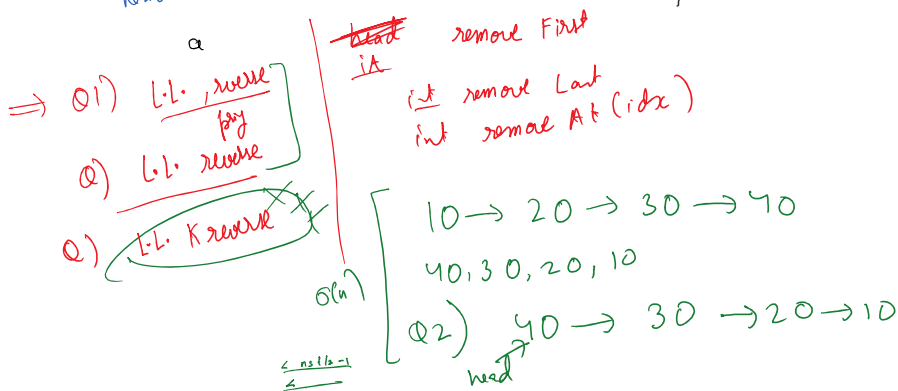 a
⇒ Q1) L.L. , rverse
pry
Q) L.L. reverse
Q) L.L. K reverse
head remove First
int remove Last
int remove At (idx)
10 → 20 → 30 → 40
40, 30, 20, 10
O(n)
Q2) 40 → 30 → 20 → 10
head